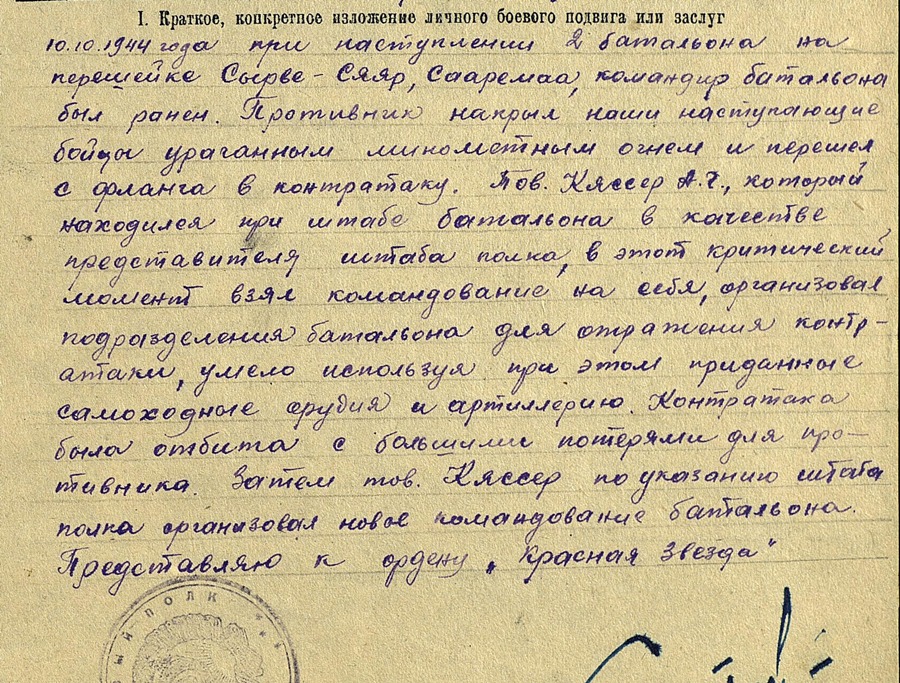 I. Краткое, конкретное изложение личного боевого подвига или заслуг
10.10.1944 года при наступлении 2 батальона на
перешейке Сырве-Сяяр, Сааремаа, командир батальона
был ранен. Противник накрыл наши наступающие
бойцы ураганным минометным огнем и перешел
с фланга в контратаку. Тов. Кяссер А.Г., который
находился при штабе батальона в качестве
представителя штаба полка, в этот критический
момент взял командование на себя, организовал
подразделения батальона для отражения контр-
атаки, умело используя при этом приданные
самоходные орудия и артиллерию. Контратака
была отбита с большими потерями для про-
тивника. Затем тов. Кяссер по указанию штаба
полка организовал новое командование батальона.
Представляю к ордену „Красная Звезда"
ЫЙ ПОЛК